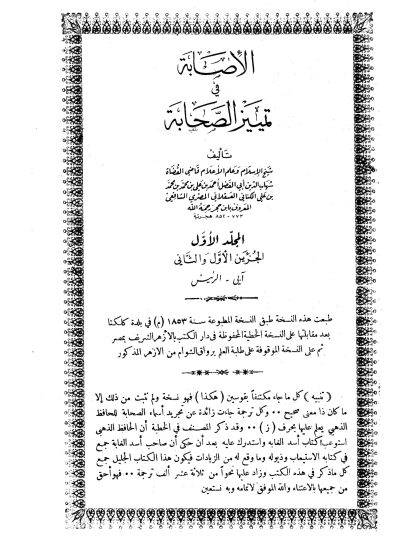 الإصابة
في
تمييز الصحابة
تأليف
شيخ الإسلام وعلم الأعلام قاضي القضاة
شهاب الدين أبي الفضل أحمد بن علي بن محمد بن محمد
بن علي الكناني العسقلاني المصري الشافعي
المعروف بابن حجر رحمه الله
٧٧٣ - ٨٥٢ هجرية
المجلد الأول
الجزءين الأول والثاني
آبي - الرئيس
طبعت هذه النسخة طبق النسخة المطبوعة سنة ١٨٥٣ (م) في بلدة كلكتا
بعد مقابلتها على النسخة الخطية المحفوظة في دار الكتب بالأزهر الشريف بمصر
ثم على النسخة الموقوفة على طلبة العلم برواق الشوام من الأزهر المذكور
( تنبيه ) كل ما جاء مكتنفاً بقوسين ( هكذا ) فهو نسخة ولم تثبت من ذلك إلا
ما كان ذا معنى صحيح ٠٠ وكل ترجمة جاءت زائدة عن تجريد أسماء الصحابة للحافظ
الذهبي يعلم عليها بحرف ( ز ) ٠٠ وقد ذكر المصنف في الخطبة أن الحافظ الذهبي
استوعب كتاب أسد الغابة واستدرك عليه بعد أن حكى أن صاحب أسد الغابة جمع
في كتابه الاستيعاب وذيوله وما وقع له من الزيادات فيكون هذا الكتاب الجليل جميع
كل ما ذكر في هذه الكتب وزاد عليها نحواً من ثلاثة عشر ألف ترجمة ٠٠ فهو أحق
من جميعها بالاعتناء والله الموفق لاتمامه وبه نستعين